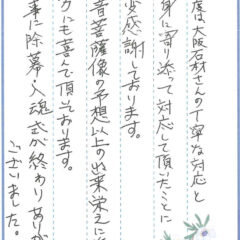 度は大阪石材さんの丁寧な対応と
身に寄り添って対応して頂いたことに
変感謝しております。
菩薩像の予想以上の出来栄えに
方にも喜んで頂いております。
事に除幕・入魂式が終わりありが
ございました。